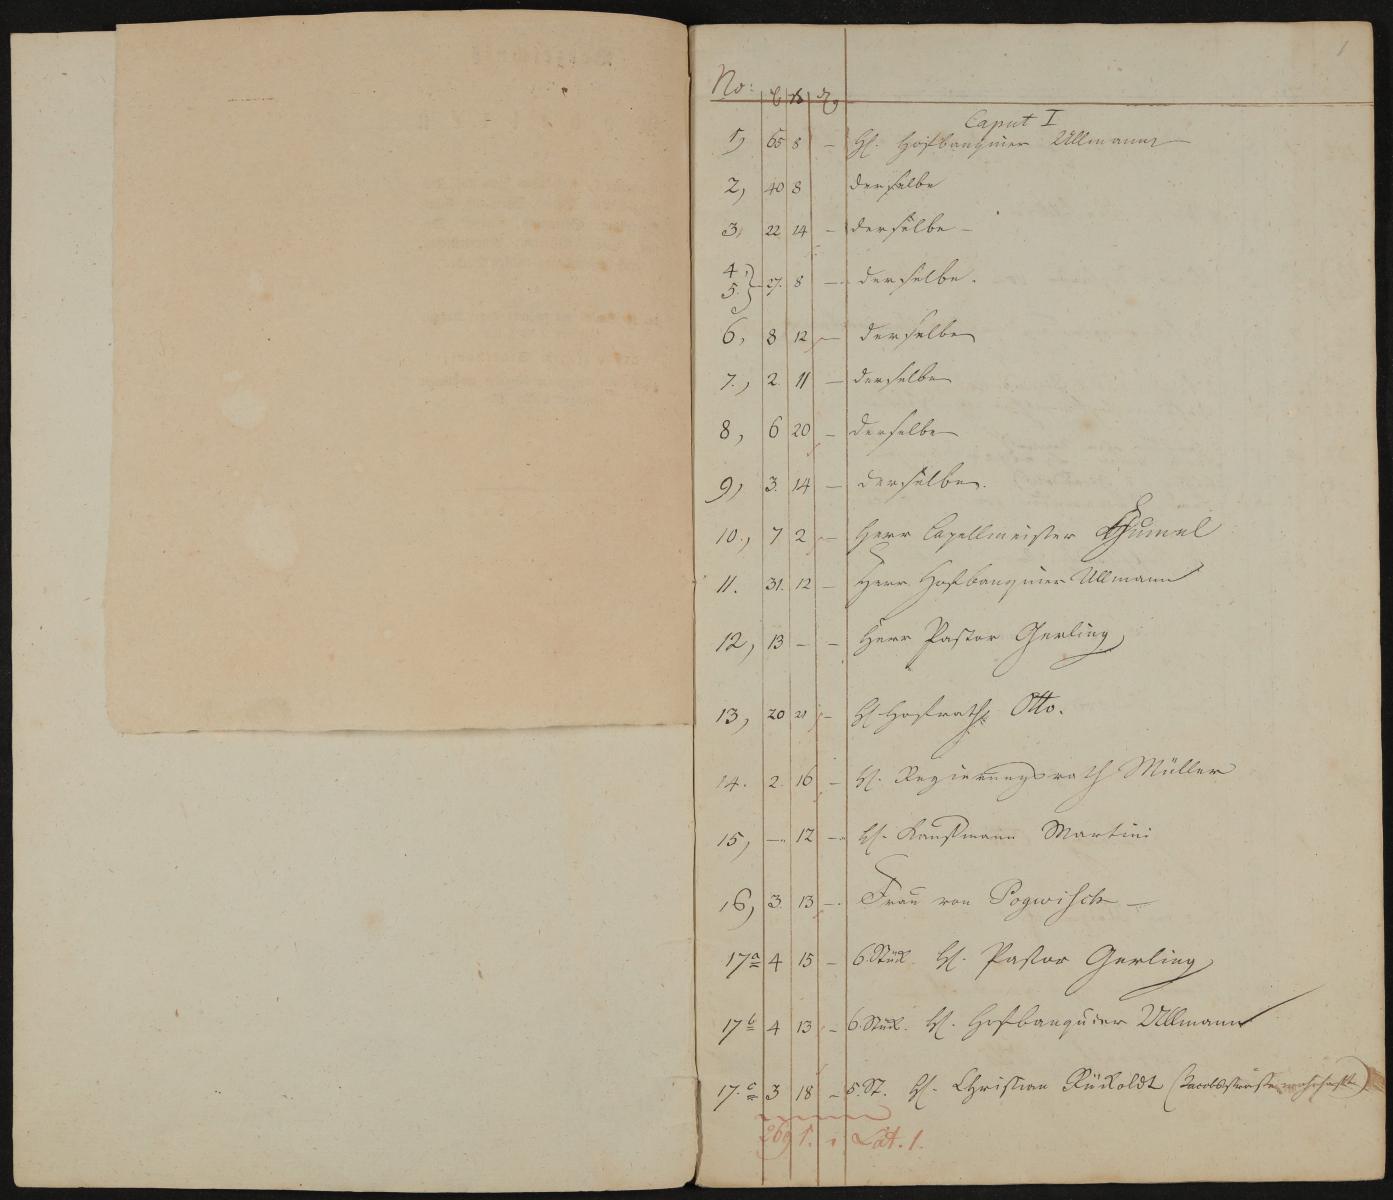 1
No:
Caput I
1, 65 8 – H. Hofbanquier Ullmann –
2, 40 8 derselbe
3, 22 14 – derselbe –
4,
5. } 27. 8 – derselbe.
6, 8 12 – derselbe
7., 2. 11 – derselbe
8, 6 20 – derselbe
9, 3. 14 – derselbe.
10., 7 2 – Herr Capellmeister Hummel
11. 31. 12 – Herr Hofbanquier Ullmann
12, 13 – – Herr Pastor Gerling
13, 20 21 – H. Hofrath Otto.
14. 2. 16 – H. Regierungsrath Müller
15, – 12 – H. Kaufmann Martini
16, 3. 13 – Frau von Pogwisch –
17a 4 15 – 6. Stück. H. Pastor Gerling
17b 4 13 – 6. Stück. H. Hofbanquier Ullmann
17.c 3 18 – 5. St. H. Christian Rückoldt (Jacobsstraße wohnhaft)
269 1. Lat. 1.